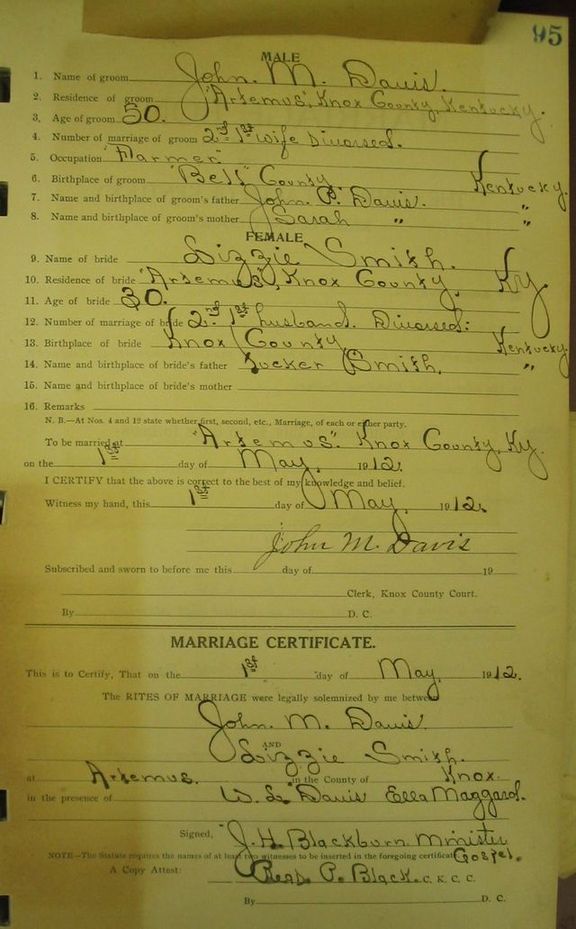 95
MALE
1. Name of groom John. M. Davis.
2. Residence of groom "Artemus", Knox County, Kentucky.
3. Age of groom 50.
4. Number of marriage of groom 2nd 1st wife Divorsed.
5. Occupation "Farmer"
6. Birthplace of groom "Bell" County, Kentucky.
7. Name and birthplace of groom's father John P. Davis. "
8. Name and birthplace of groom's mother Sarah "
FEMALE
9. Name of bride Lizzie Smith.
10. Residence of bride "Artemus", Knox County, Ky
11. Age of bride 30.
12. Number of marriage of bride 2nd 1st husband. Divorsed.
13. Birthplace of bride Knox County, Kentucky.
14. Name and birthplace of bride's father Smith. "
15. Name and birthplace of bride's mother
16. Remarks
N. B.—At Nos. 4 and 12 state whether first, second, etc., Marriage, of each or either party.
To be married at "Artemus". Knox County, Ky.
on the 1st day of May, 1912.
I CERTIFY that the above is correct to the best of my knowledge and belief.
Witness my hand, this 1st day of May, 1912.
John M. Davis
Subscribed and sworn to before me this day of 19
Clerk, Knox County Court.
By D. C.
MARRIAGE CERTIFICATE.
This is to Certify, That on the 1st day of May, 1912.
The RITES OF MARRIAGE were legally solemnized by me between
John. M. Davis.
AND
Lizzie Smith.
at Artemus. in the County of Knox.
in the presence of W. L. Davis Ella Maggard.
Signed, J. H. Blackburn Minister
NOTE—The Statute requires the names of at least two witnesses to be inserted in the foregoing certificate Gospel.
A Copy Attest: P. Black. C. K. C. C.
By D. C.